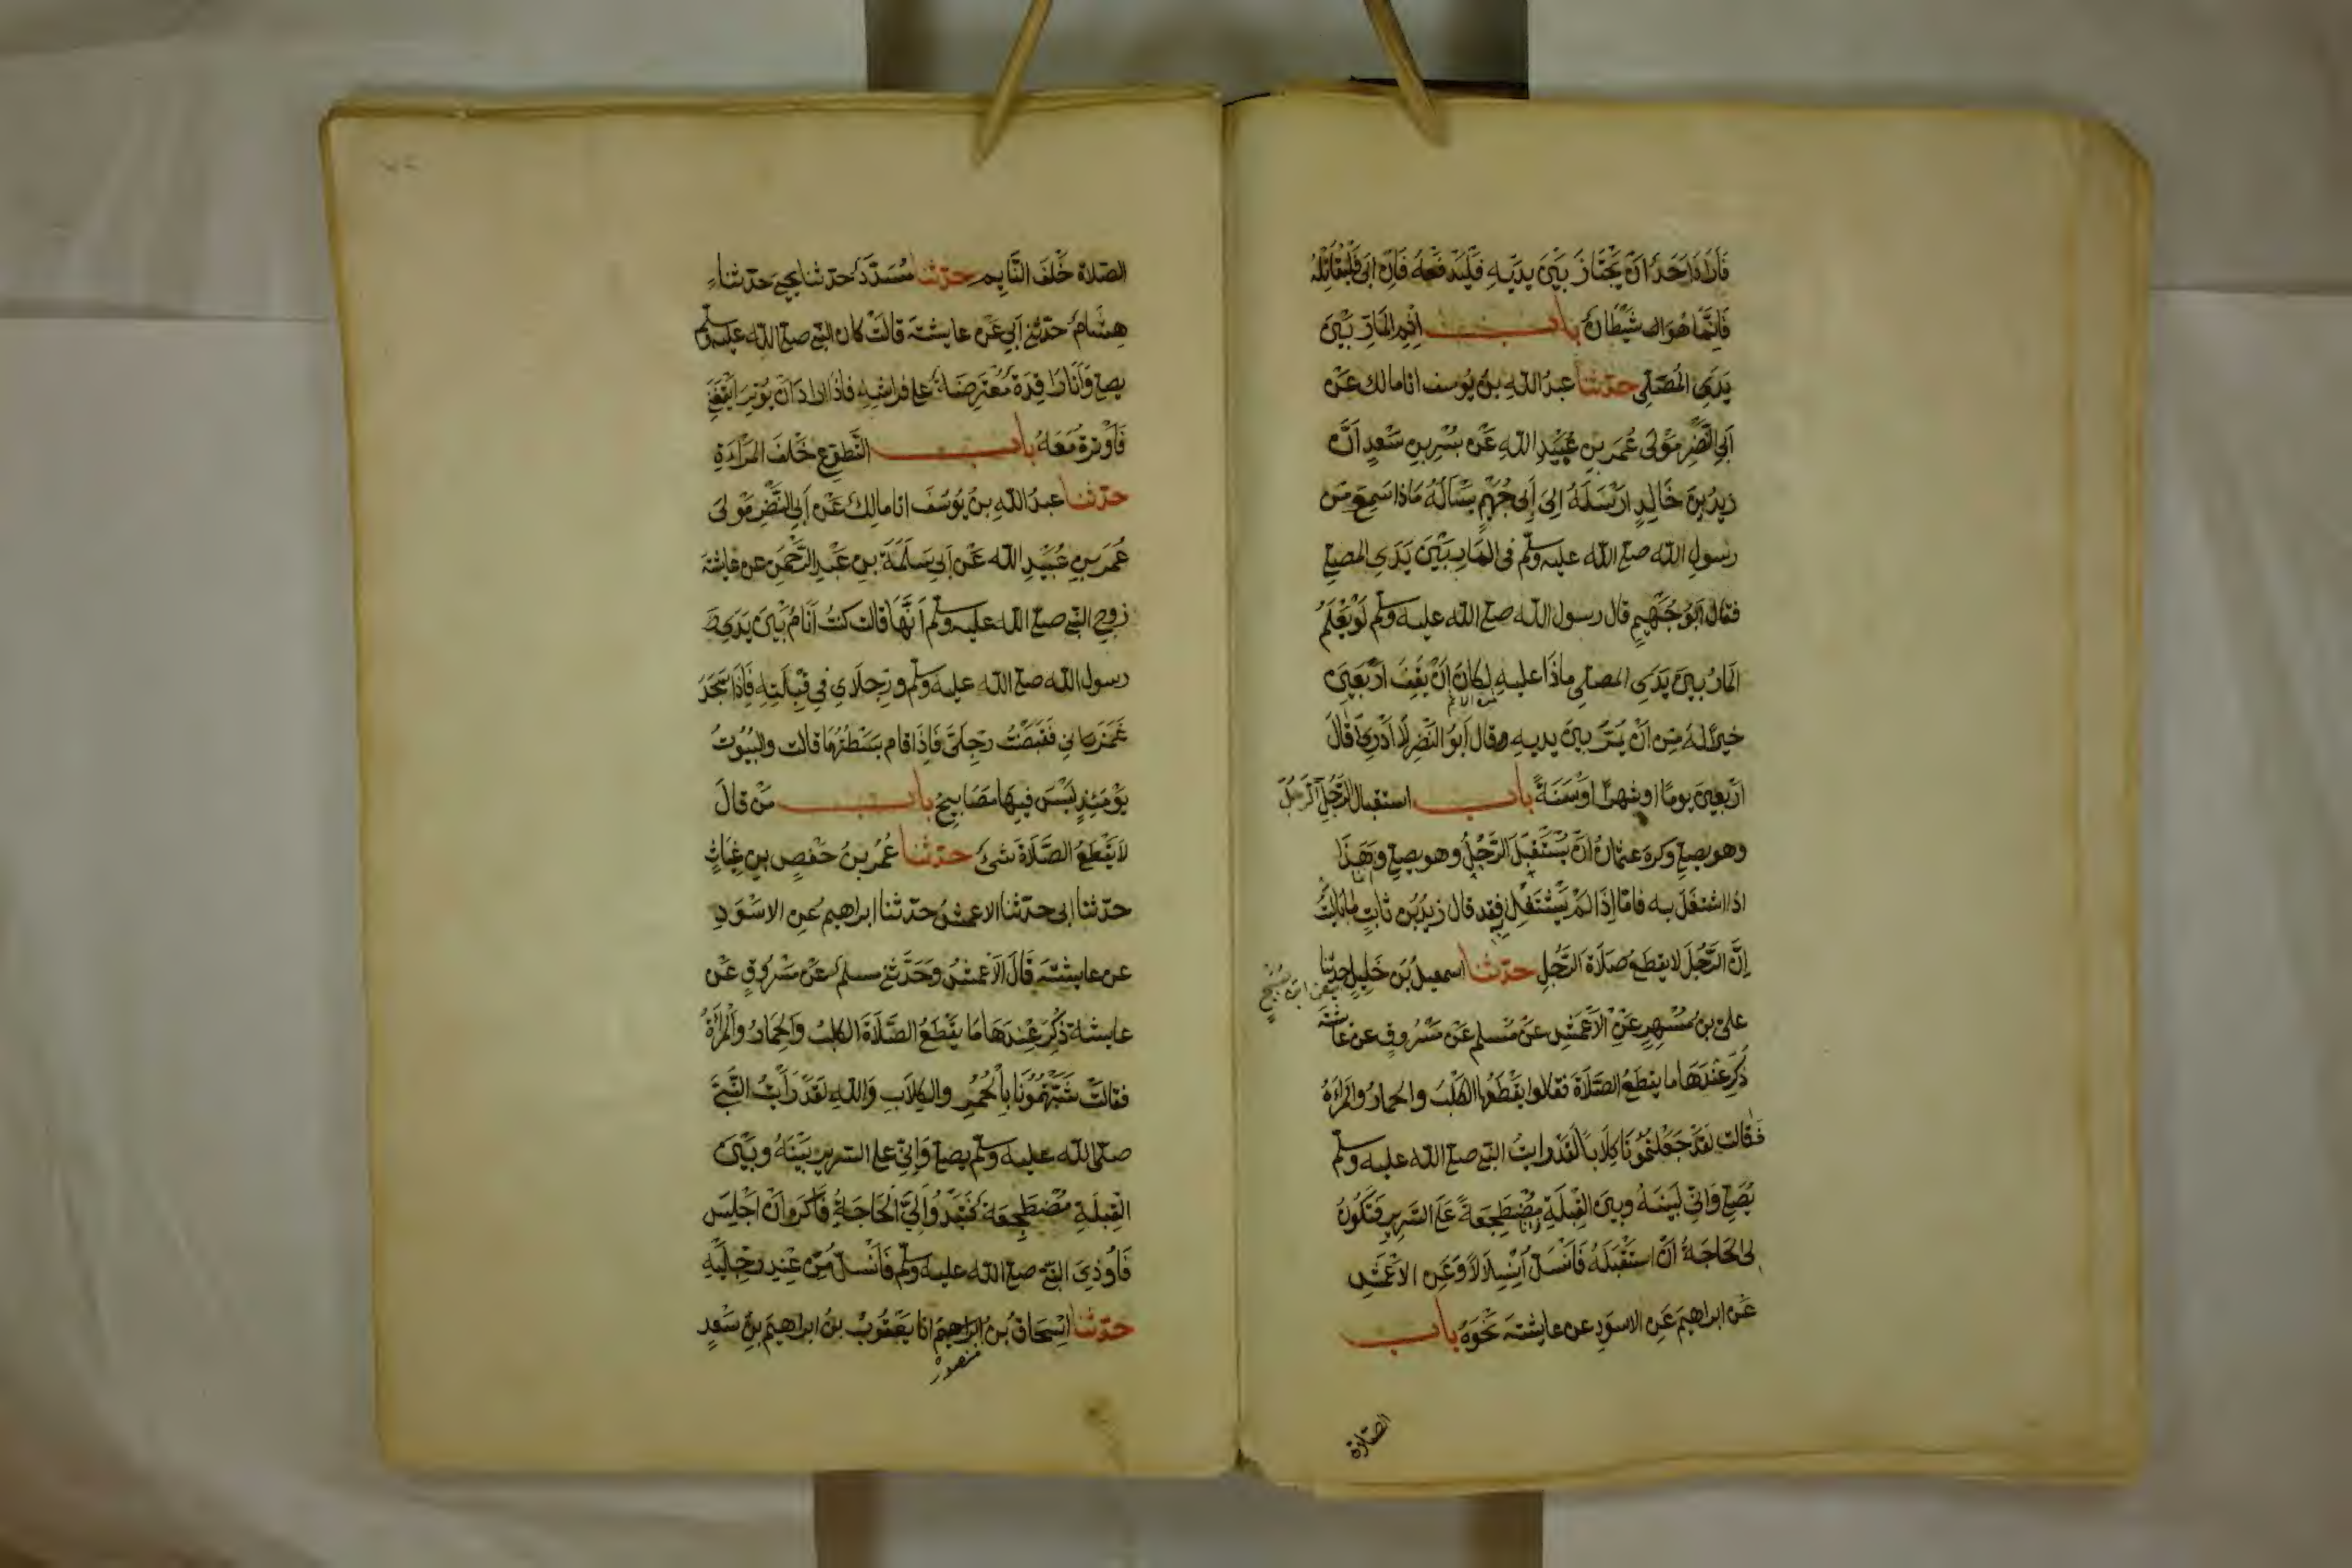 فَاَرَادَ اَحَدٌ اَنْ يَجْتَازَ بَيْنَ يَدَيْهِ فَلْيَدْفَعْهُ فَاِنْ ابَى فَلْيُقَاتِلْهُ
فَاِنَّمَا هُوَ الشَيْطَانُ بابــــ اِثْمِ المَارِّ بَيْنَ
يَدَيِ المُصَلِّى حدّثنا عبدُ اللهِ بنُ يُوسف انا مالك عَنْ
اَبِى النَّضْرِ مَوْلَى عُمَرَ بنِ عُبَيْدِ اللهِ عَنْ بُسْرِ بنِ سَعِدٍ اَنَّ
زيدَ بْنَ خَالِدٍ اَرْسَلَهُ اِلىَ اَبِى جُهَيْمٍ يَسْاَلُهُ مَاذَا سَمِعَ مِن
رسولِ الله صلى الله عليه وسلم فى المَارِّ بَيْنَ يَدَيِ المصلى
فقال اَبُو جُهَيْمٍ قال رسول الله صلى الله عليه وسلم لَوْ يَعْلَمُ
المَارُّ بينَ يَدَيِ المصلى ماذَا عليه لكانَ اَنْ يَقِفَ اَرْبَعِينَ
خيرًا لهُ مِن اَنْ يَمُرَّ بينَ يديه قال اَبُو النَّضْرِ لَا اَدْرِى اَقَالَ
اَرْبَعِينَ يومًا او شهرًا اَوْسَنَةً بابــــ استقبال الرَّجُلِ الرّجلَ
وهو يصلى وكرهَ عثمانُ اَنْ يُسْتَقْبَلَ الرَّجُلُ وهو يصلى وهَذَا
اذا اشتغلَ به فامّا اِذَا لمْ يَشْتَغِلْ به فقد قال زيدُ بْن ثابتٍ مابَالَيْتُ
اِنَّ الرَّجُلَ لا يقطعُ صَلَاةَ الرَّجُلِ حدّثنا اسمعيلُ بْن خَلِيلٍ حدثنا
علىُّ بنُ مُسْهِرٍ عَنْ الاَعْمَشِ عنْ مُسلمٍ عَنْ مَسْرُوقٍ عن عائشة
يعنى ابن صُبَيْحٍ
ذُكِرَ عِنْدَهَا ما يقطعُ الصَّلَاةَ فقالوا يقْطَعُها الكَلْبُ والحمارُ والمَرْاَةُ
فقالت لقدْ جَعَلْتُمُونَا كِلَابًا لَقَدْ رايتُ النبى صلى الله عليه وسلم
يُصَلى وَاِنّى لَبَيْنَهُ وبينَ القِبْلَةِ وانا مُضْطَجِعَةٌ عَلَى السَّرِيرِ فَتَكُونُ
لى الحَاجَةُ اَنْ اَسْتَقْبِلَهُ فَاَنْسَلُّ اِنْسِلَالًا وَعَنِ الاعْمَشِ
عَن ابراهيمَ عَنِ الاسوَدِ عن عايشةَ نَحْوَهُ بابــــ
الصّلاة
الصّلاة خَلْفَ النَّايِمِ حدّثنا مُسَدَّدٌ حدّثنا يحيى حدّثنا
هِشَامٌ حدّثنى اَبِى عَنْ عايشةَ قالَتْ كان النبى صلى الله عليه وسلم
يصلى وَاَنَا رَاقِدَةٌ مُعْتَرِضَةٌ على فراشِهِ فاذَا ارادَ اَنْ يُوتِرَ اَيْقَظَنِى
فَاَوْترتُ مَعَهُ بابــــ التَّطَوُّعِ خَلْفَ المَرْاَةِ
حدّثنا عبدُ اللهِ بنُ يُوسُفَ انا مالِكٌ عَنْ اَبِى النَّضْرِ مَوْلَى
عُمَرَ بنِ عُبَيْدِ الله عَنْ اَبِى سَلَمَةَ بنِ عَبْدِ الرَّحْمَنِ عن عايشة
زوجِ النبى صلى الله عليه وسلم اَنَّهَا قالت كنتُ اَنَامُ بَيْنَ يَدَىْ
رسول الله صلى الله عليه وسلم وَرِجْلَاىَ فِى قِبْلَتِهِ فَاِذَا سَجَدَ
غَمَزَنى فَقَبَضْتُ رِجْلَىَّ فَاِذَا قام بَسَطْتُهُمَا قالت والبُيُوتُ
يَوْمَئِذٍ لَيْسَ فِيهَا مَصَابِيحُ بابــــ مَنْ قالَ
لَا يَقْطَعُ الصَّلَاةَ شىٌ حدّثنا عُمَرُ بنُ حَفْصِ بنِ غِيَاثٍ
حدّثنا ابى حدّثنا الاعمشُ حدّثنا ابراهيمُ عنِ الاسْوَدِ
عن عايشةَ قَالَ الاَعْمَشُ وَحَدَّثنى مسلم عَنْ مَسْرُوقٍ عَن
عايشةَ ذُكِرَ عِنْدَهَا مَا يَقْطَعُ الصَّلَاةَ الكلبُ وَالحِمَارُ والمَرْاَةُ
فقالتْ شَبَّهْتُمُونَا بِالْحُمُرِ والكِلَابِ وَاللهِ لَقَدْ رَاَيْتُ النَّبِىَّ
صلى الله عليه وسلم يصلى وَاِنّى على السَّريرِ بَيْنَهُ وبَيْنَ
القِبْلَةِ مُضْطَجِعَةٌ فَتَبْدُو لِىَ الْحَاجَةُ فَاَكْرَهُ اَنْ اَجْلِسَ
فَاُوذِىَ النبى صلى الله عليه وسلم فَاَنْسَلُّ مِنْ عِنْدِ رِجْلَيْهِ
حدّثنا اِسْحَاقُ بْنُ اِبراهيمَ انا يَعْقُوبُ بنُ ابراهيمَ بنِ سَعْدٍ
منصور